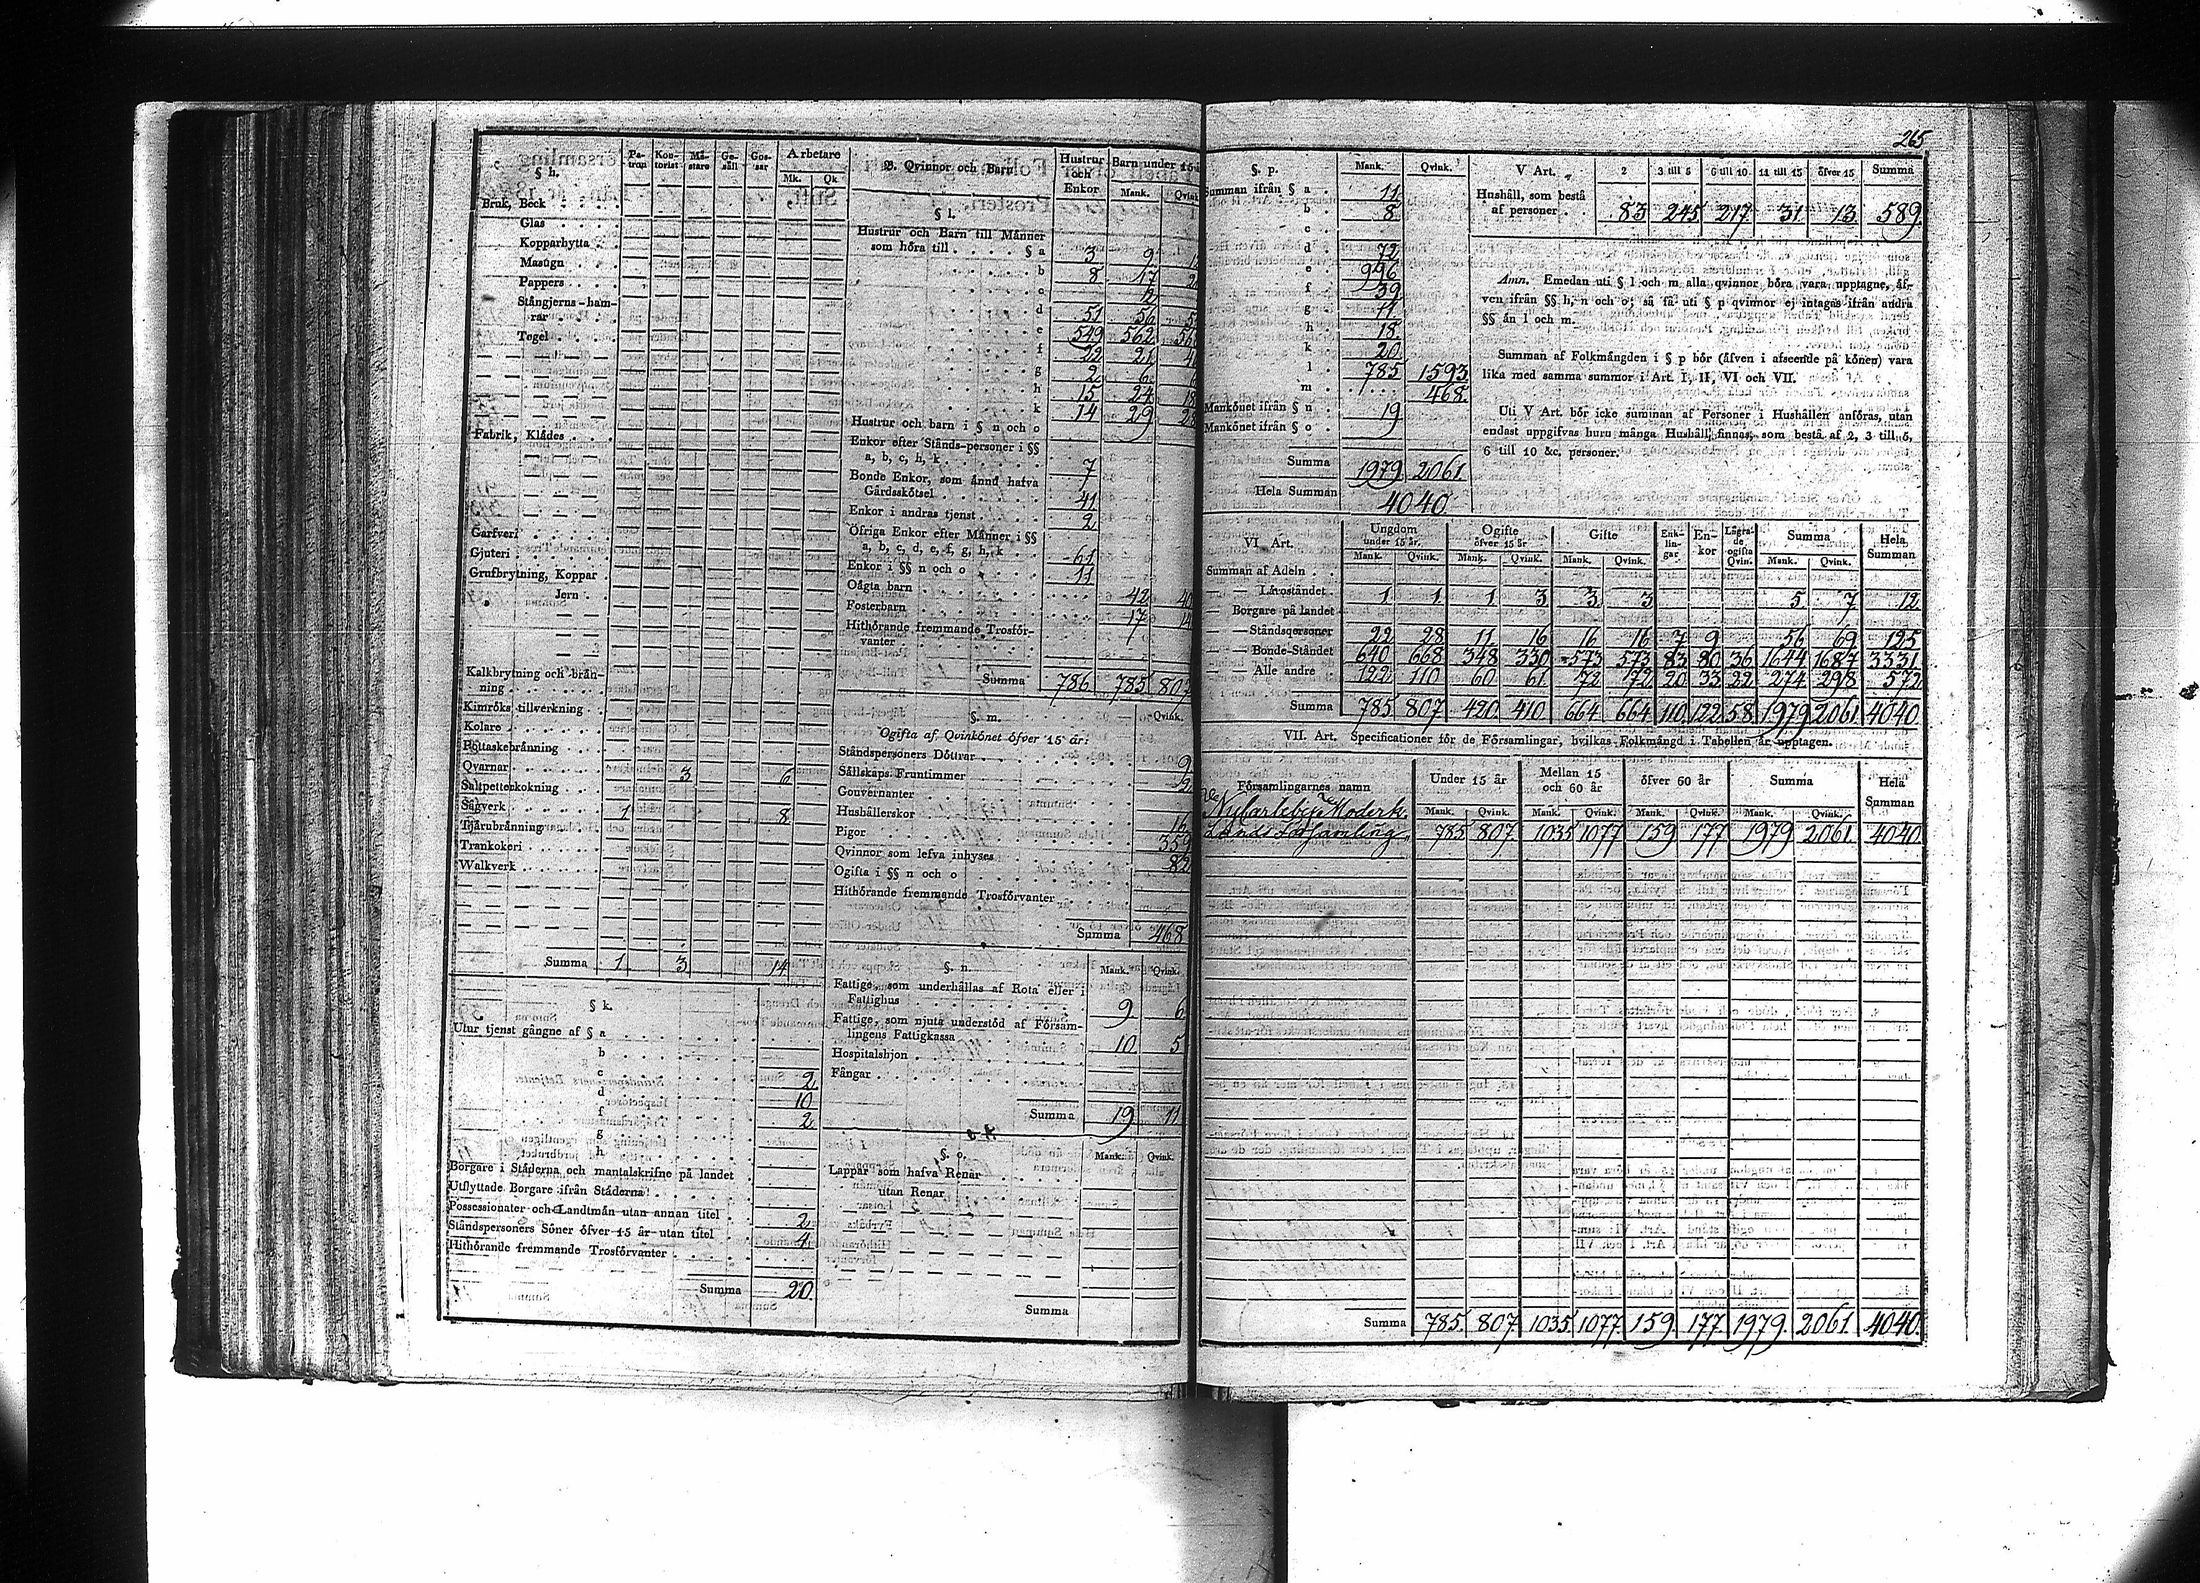 265
§ h.
Pa-tron Kon-torist Mä-stare Ge-säll Gos-sar Arbetare
Mk. Qk
Bruk, Beck
Glas
Kopparhytta
Masugn
Pappers
Stångjerns-ham-
rar
Tegel
Fabrik, Klädes
Garfveri
Gjuteri
Grufbrytning, Koppar
Jern
Kalkbrytning och brän-
ning
Kimröks tillverkning
Kolare
Pottaskebränning
Qvarnar 3 6
Saltpetterkokning
Sågverk 1 8
Tjärubränning
Trankokeri
Walkverk
Summa 1 3 14
§ k.
Utur tjenst gångne af § a
b
c 2
d 10
f 2
g
h
Borgare i Städerna och mantalskrifne på landet
Utflyttade Borgare ifrån Städerna
Possessionater och Landtmän utan annan titel 2
Ståndspersoners Söner öfver 15 år utan titel 4
Hithörande fremmande Trosförvanter
Summa 20
B. Qvinnor och Barn
Hustrur och Enkor Barn under 15
Mank. Qvink.
§ l.
Hustrur och Barn till Männer
som höra till § a 3 9
b 8 17
c 12
d 51 56
e 549 562
f 22 21
g 2 6
h 15 24 18
k 14 29 28
Hustrur och barn i § n och o
Enkor efter Stånds-personer i §§
a, b, c, h, k 7
Bonde Enkor, som ännu hafva
Gårdsskötsel 41
Enkor i andras tjenst 2
Öfriga Enkor efter Männer i §§
a, b, c, d, e, f, g, h, k 61
Enkor i §§ n och o 11
Oägta barn 42 40
Fosterbarn 17 14
Hithörande fremmande Trosför-
vanter
Summa 786 785 807
§. m. Qvink.
Ogifta af Qvinkönet öfver 15 år:
Ståndspersoners Döttrar 9
Sällskaps Fruntimmer 2
Gouvernanter
Hushållerskor 16
Pigor 359
Qvinnor som lefva inhyses 82
Ogifta i §§ n och o
Hithörande fremmande Trosförvanter
Summa 468
§. n. Mank. Qvink.
Fattige, som underhållas af Rota eller i
Fattighus 9 6
Fattige, som njuta understöd af Försam-
lingens Fattigkassa 10 5
Hospitalshjon
Fångar
Summa 19 11
§. o. Mank. Qvink.
Lappar som hafva Renar
utan Renar
Summa
§. p. Mank. Qvink.
Summan ifrån § a 11
b 8
c
d 72
e 996
f 39
g 11
h 18
k 20
l 785 1593
m 468
Mankönet ifrån § n 19
Mankönet ifrån § o
Summa 1979 2061
Hela Summan 4040
V Art. 2 3 till 5 6 till 10 11 till 15 öfver 15 Summa
Hushåll, som bestå
af personer 83 245 217 31 13 589
Anm. Emedan uti § l och m alla qvinnor böra vara upptagne, äf-
ven ifrån §§ h, n och o; så få uti § p qvinnor ej intagas ifrån andra
§§ än l och m.
Summan af Folkmängden i § p bör (äfven i afseende på könen) vara
lika med samma summor i Art. I, II, VI och VII.
Uti V Art. bör icke summan af Personer i Hushållen anföras, utan
endast uppgifvas huru många Hushåll finnas, som bestå af 2, 3 till 5,
6 till 10 &c. personer.
VI Art. Ungdom under 15 år. Ogifte öfver 15 år. Gifte Enk-lin-gar En-kor Lägra-de ogifta Qvin. Summa Hela Summan
Mank. Qvink. Mank. Qvink. Mank. Qvink. Mank. Qvink.
Summan af Adeln
— — Läroståndet 1 1 1 3 3 3 5 7 12
— Borgare på landet
— — Ståndspersoner 22 28 11 16 16 16 7 9 56 69 125
— — Bonde-Ståndet 640 668 348 330 573 573 83 80 36 1644 1687 3331
— — Alle andre 122 110 60 61 72 72 20 33 22 274 298 572
Summa 785 807 420 410 664 664 110 122 58 1979 2061 4040
VII. Art. Specificationer för de Församlingar, hvilkas Folkmängd i Tabellen är upptagen.
Församlingarnes namn Under 15 år Mellan 15 och 60 år öfver 60 år Summa Hela Summan
Mank. Qvink. Mank. Qvink. Mank. Qvink. Mank. Qvink.
Nykarleby Moderk.
Lands Församling 785 807 1035 1077 159 177 1979 2061 4040
Summa 785 807 1035 1077 159 177 1979 2061 4040